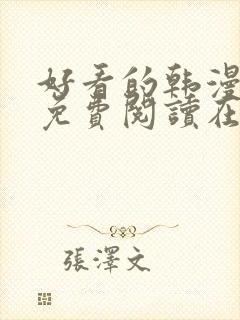 好看的韩漫
免費閱讀在
張澤文